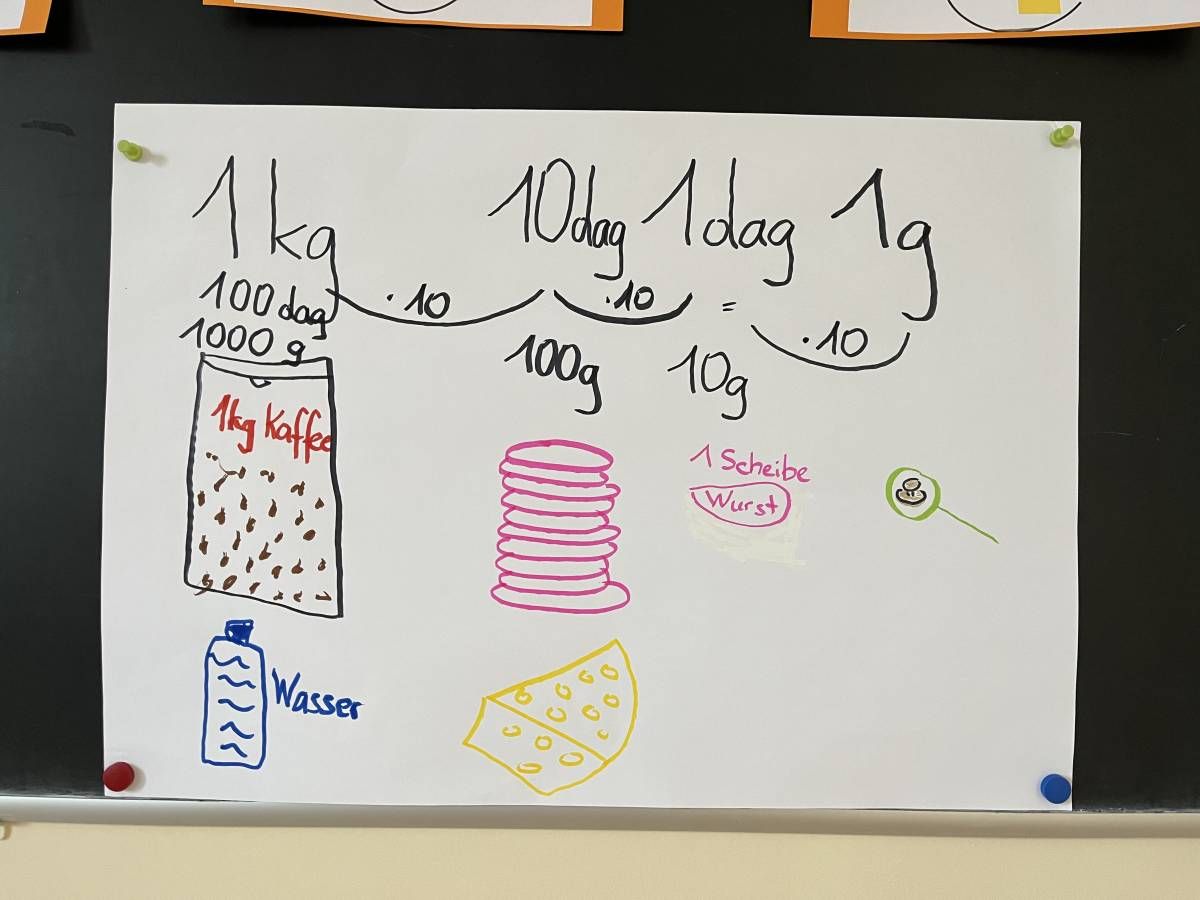 1kg 10dag 1dag 1g
100dag ·10 ·10 = ·10
1000g 100g 10g
1kg Kaffee
1 Scheibe
Wurst
Wasser